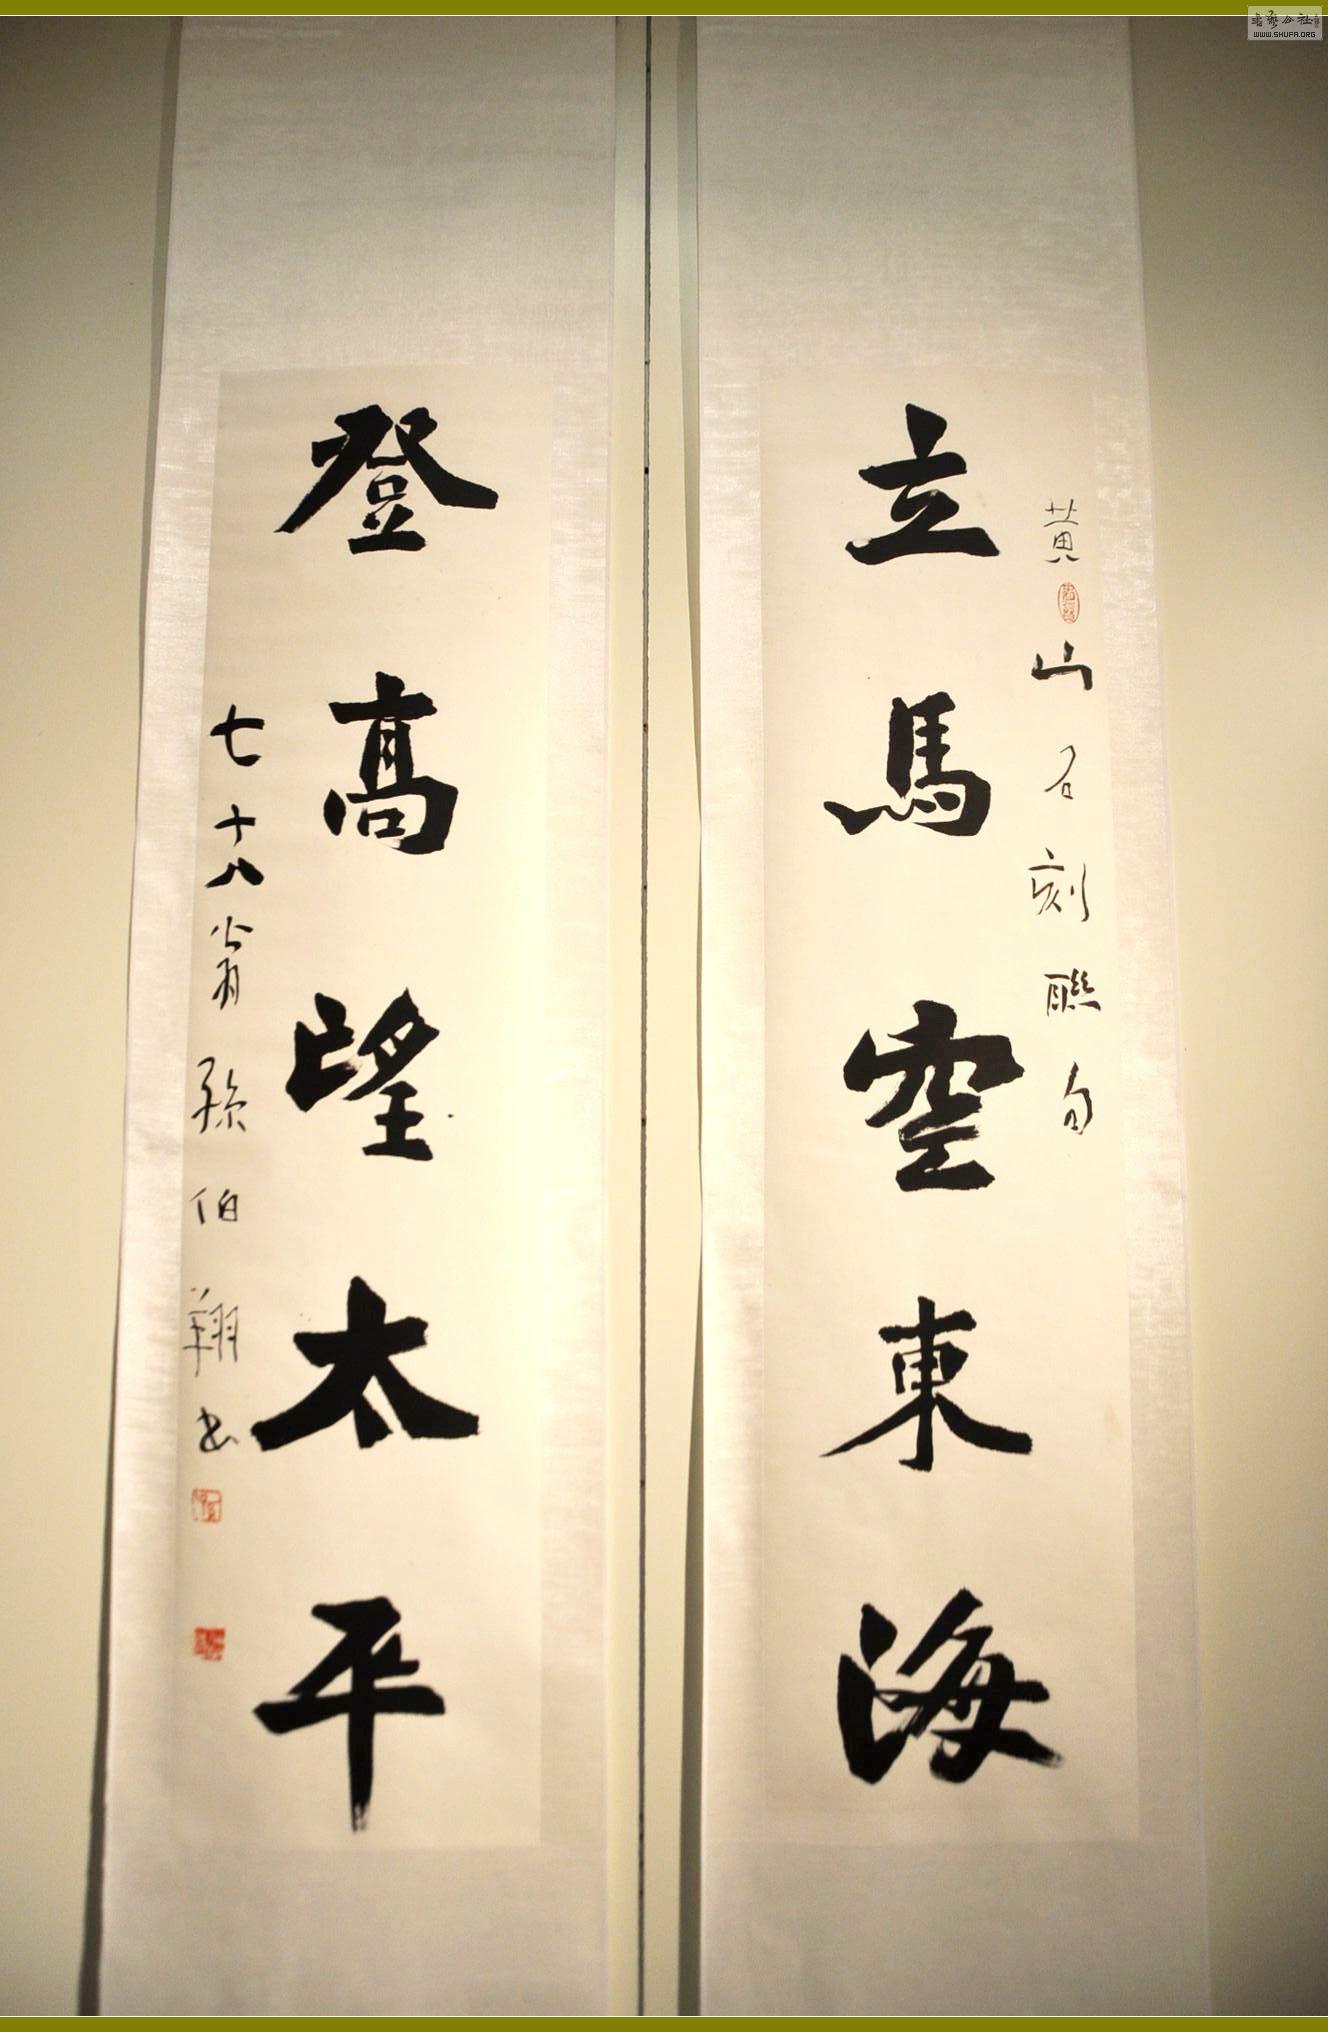 黄山石刻聯句
立馬空東海
登高望太平
七十八翁孫伯翔书
書艺公社
WWW.SHUFA.ORG